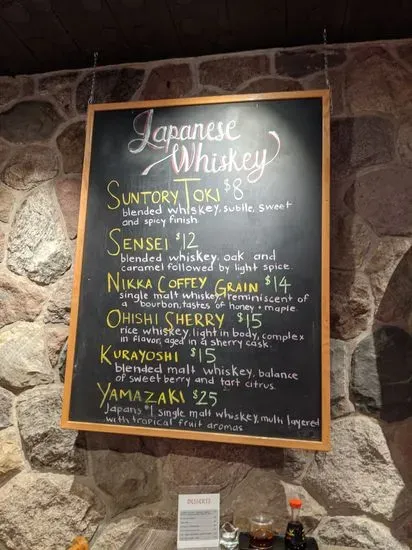 Japanese
Whiskey
SUNTORY TOKI $8
blended whiskey, subtle, sweet
and spicy finish.
SENSEI $12
blended whiskey, oak and
caramel followed by light spice.
NIKKA COFFEY GRAIN $14
single malt whiskey, reminiscent of
a bourbon, tastes of honey + maple.
OHISHI CHERRY $15
rice whiskey, light in body, complex
in flavor, aged in a sherry cask.
KURAYOSHI $15
blended malt whiskey, balance
of sweet berry and tart citrus.
YAMAZAKI $25
Japans #1 single malt whiskey, multi layered
with tropical fruit aromas
DESSERTS